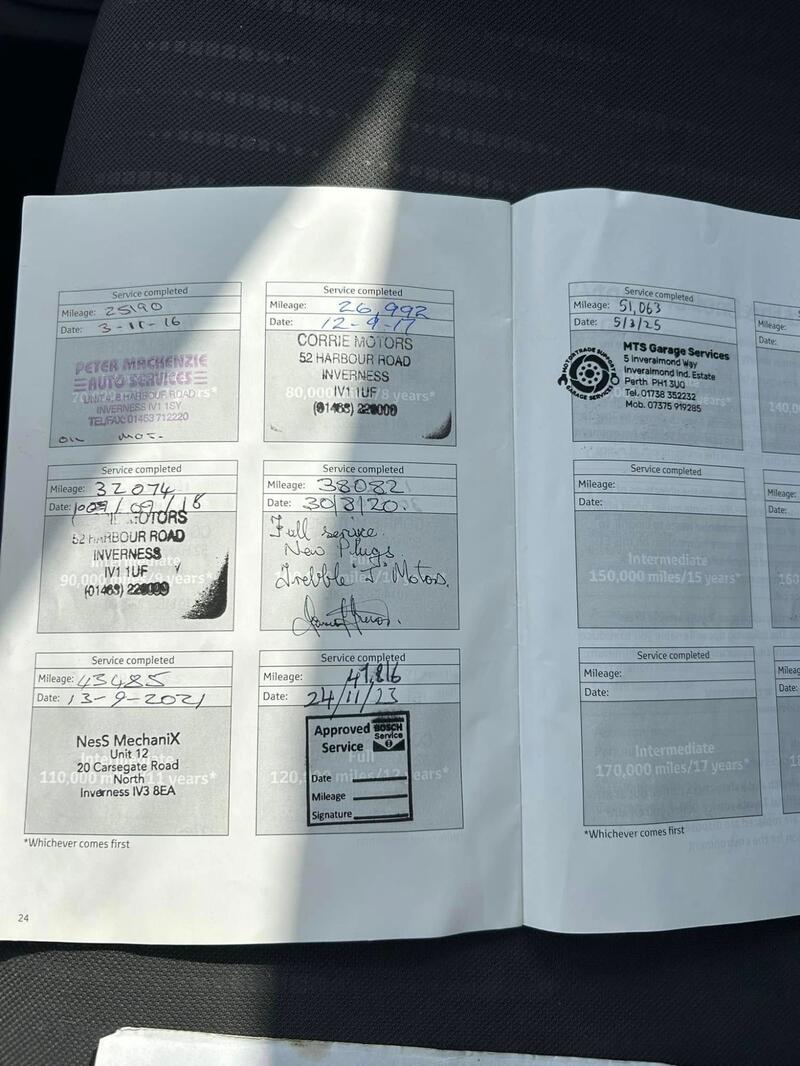 Service completed
Mileage: 25190
Date: 3-11-16
PETER MACKENZIE
AUTO SERVICES
UNIT 4, 8 HARBOUR ROAD
INVERNESS IV1 1SY
TEL/FAX: 01463 712220
OIL MOT.
Service completed
Mileage: 26,992
Date: 12-9-17
CORRIE MOTORS
52 HARBOUR ROAD
INVERNESS
IV1 1UF
80,000 8 years*
(01463)
Service completed
Mileage: 32074
Date: /09/18
MOTORS
52 HARBOUR ROAD
INVERNESS
Intermediate
IV1 1UF
90,000 miles/9 years*
(01463)
Service completed
Mileage: 38082
Date: 30/8/20.
Full service
New Plugs
Trebble "J" Motors.
Service completed
Mileage: 43485
Date: 13-9-2021
NesS MechaniX
Unit 12
20 Carsegate Road
North
Inverness IV3 8EA
110,000 miles/11 years*
Service completed
Mileage: 47,816
Date: 24/11/23
Approved
Service
BOSCH
Service
Full
120, miles/12 years*
Date
Mileage
Signature
*Whichever comes first
24
Service completed
Mileage: 51,063
Date: 5/3/25
MOTORTRADE SUPPORT
GARAGE SERVICES
MTS Garage Services
5 Inveralmond Way
Inveralmond Ind. Estate
Perth PH1 3UQ
Tel. 01738 352232
Mob. 07375 919285
Service completed
Mileage:
Date:
Intermediate
150,000 miles/15 years*
Service completed
Mileage:
Date:
Intermediate
170,000 miles/17 years*
*Whichever comes first
Mileage:
Date:
140,0
Mileage:
Date:
160
Mileage:
Date: